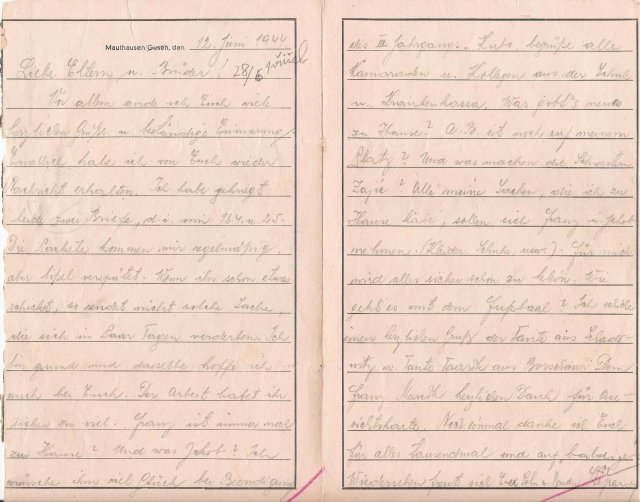 Mauthausen/Gusen, den 12. Juni 1944
Liebe Eltern u. Brüder! 28/6
Vor allem sende ich Euch viele
herzlichen Grüße u. beständige Erinnerung
Endlich habe ich von Euch wieder
Nachricht erhalten. Ich habe gekriegt
beide zwei Briefe, d. i. vom 18.4. u. 2.5.
Die Pakete kommen mir regelmäßig,
aber bißel verspätet. Wenn ihr schon etwas
schicket, so sendet nicht solche Sache,
die sich in Paar Tagen verderben. Ich
bin gesund und dasselbe hoffe ich
auch bei Euch. Der Arbeit habet ihr
sicher zu viel. Franz ist immer noch
zu Hause? Und was Jakob? Ich
wünsche ihm viel Glück bei Beendigung
des III Jahrgangs. Kubo, begrüße alle
Kameraden u. Kollegen aus der Schule
u. Krankenkassa. Was gibt's neues
zu Hause? A. B. ist noch auf meinem
Platz? Und was machen die Schwestern
Zajic? Alle meine Sachen, die ich zu
Hause habe, solen sich Franz u. Jakob
nehmen. (Kleider, Schuhe, usw.). Für mich
wird alles sicher schon zu klein. Wie
geht es mit dem Fußbaal? Ich schicke
einen herzlichen Gruß der Tante aus
u. Tante aus Den
Franz herzlichen Dank für
sichtskarte. Noch einmal danke ich Euch
für alles tausendmal und auf baldige
Wiedersehen freut sich Euer Sohn u. Bruder